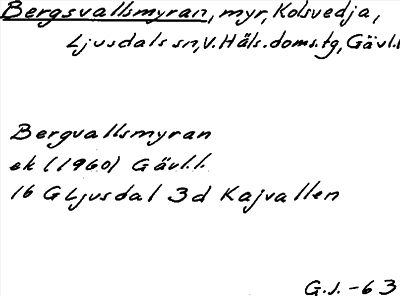 Bergsvallsmyran, myr, Kolsvedja,
Ljusdals sn, V. Häls. doms.tg, Gävl.l
Bergvallsmyran
ek (1960) Gävl.l.
16 G Ljusdal 3d Kajvallen
G.J. -63